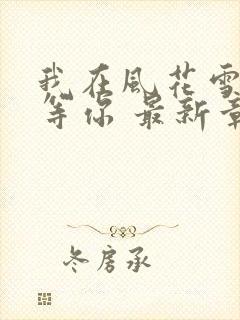 我在風花雪
等你 最新章
冬房承